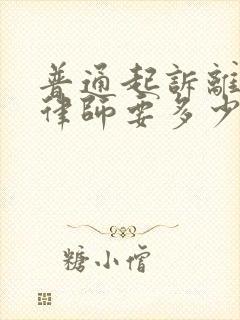 普通起訴離
律師要多少
糖小僧